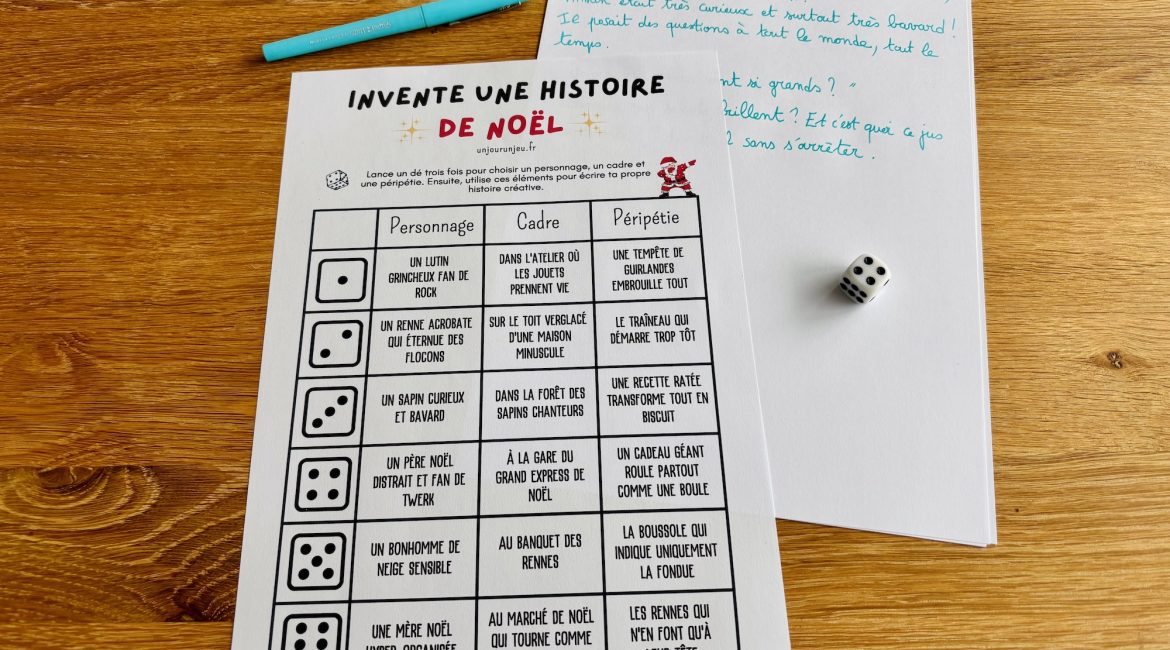 était très curieux et surtout très bavard !
Il posait des questions à tout le monde, tout le
temps.
si grands ? "
brillent ? Et c'est quoi ce jus
sans s'arrêter.
INVENTE UNE HISTOIRE
DE NOËL
unjourunjeu.fr
Lance un dé trois fois pour choisir un personnage, un cadre et
une péripétie. Ensuite, utilise ces éléments pour écrire ta propre
histoire créative.
Personnage Cadre Péripétie
UN LUTIN
GRINCHEUX FAN DE
ROCK
DANS L'ATELIER OÙ
LES JOUETS
PRENNENT VIE
UNE TEMPÊTE DE
GUIRLANDES
EMBROUILLE TOUT
UN RENNE ACROBATE
QUI ÉTERNUE DES
FLOCONS
SUR LE TOIT VERGLACÉ
D'UNE MAISON
MINUSCULE
LE TRAÎNEAU QUI
DÉMARRE TROP TÔT
UN SAPIN CURIEUX
ET BAVARD
DANS LA FORÊT DES
SAPINS CHANTEURS
UNE RECETTE RATÉE
TRANSFORME TOUT EN
BISCUIT
UN PÈRE NOËL
DISTRAIT ET FAN DE
TWERK
À LA GARE DU
GRAND EXPRESS DE
NOËL
UN CADEAU GÉANT
ROULE PARTOUT
COMME UNE BOULE
UN BONHOMME DE
NEIGE SENSIBLE
AU BANQUET DES
RENNES
LA BOUSSOLE QUI
INDIQUE UNIQUEMENT
LA FONDUE
UNE MÈRE NOËL
HYPER ORGANISÉE
AU MARCHÉ DE NOËL
QUI TOURNE COMME
LES RENNES QUI
N'EN FONT QU'À
LEUR TÊTE